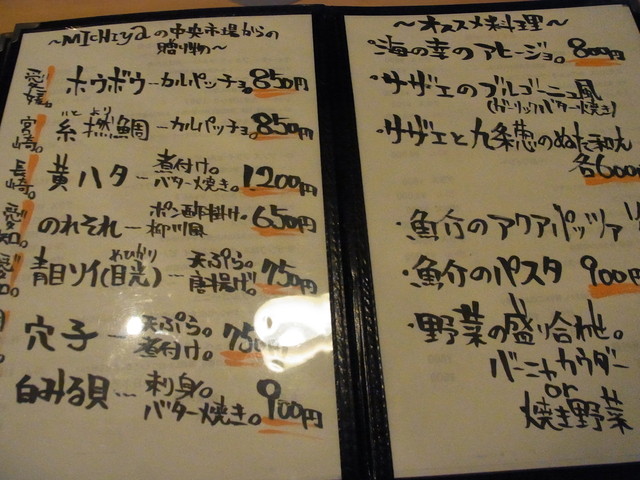 ~MICHIYAの中央市場からの
贈り物~
愛媛。 ホウボウ…カルパッチョ。850円
宮崎。 糸撚鯛 いと より …カルパッチョ。850円
長崎。 黄ハタ… 煮付け。
バター焼き。 1200円
愛知。 のれそれ… ポン酢掛け。
柳川風 650円
青目ソイ(目光) めひかり … 天ぷら。
唐揚げ。 750円
穴子… 天ぷら。
煮付け。 750円
白みる貝… 刺身。
バター焼き。 900円
~オススメ料理~
・海の幸のアヒージョ。800円
・サザエのブルゴーニュ風
(ガーリックバター焼き)
・サザエと九条葱のぬた和え
各600円
・魚介のアクアパッツァ
・魚介のパスタ 900円
・野菜の盛り合わせ。
バーニャカウダー
or
焼き野菜